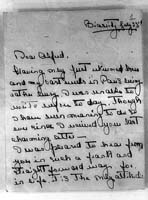 Biarritz, July 25th
Dear Alfred.
Having only just returned here
and my last week in Paris being
rather busy, I was unable to
write before to day. Though
I have been meaning to do so
ever since I received your last
charming letter
I was pleased to hear from
you in such a frank and
straight forward way. For
in life it is the only attitude